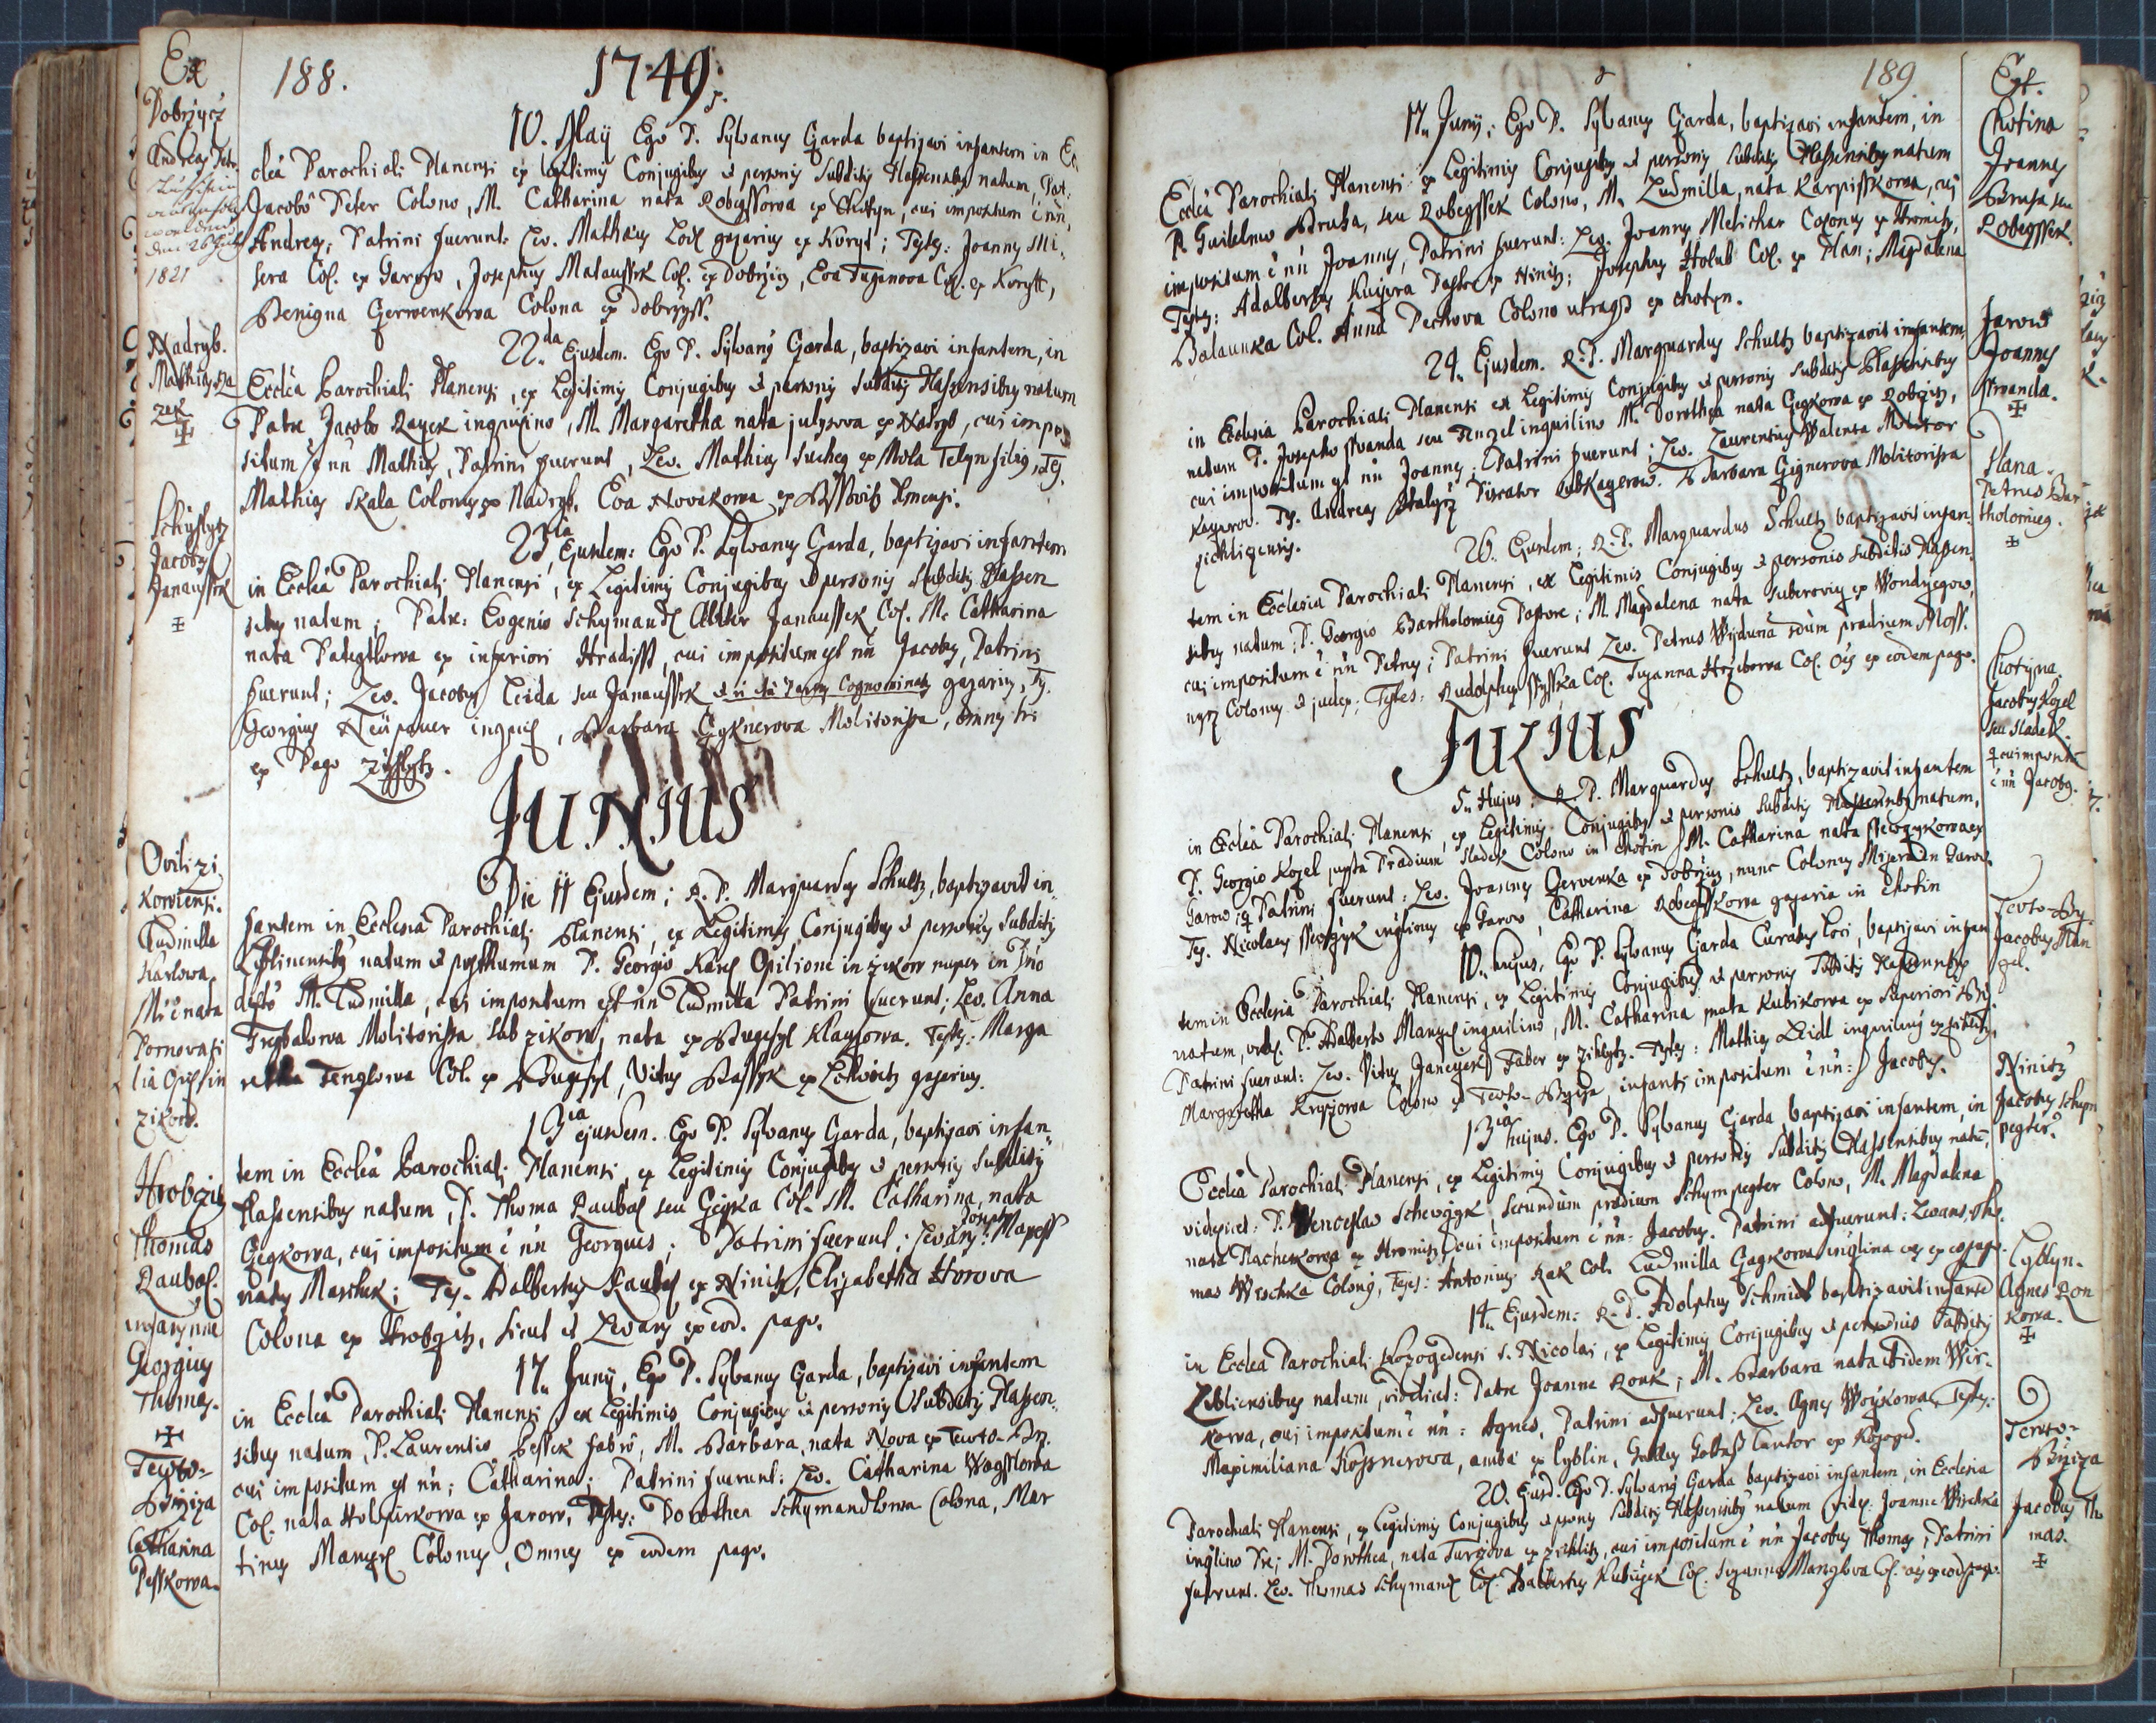 188.
1749.
Ex
Dobrzicz
Andreas Peter
1821
10. Maÿ Ego P. Sylvanus Garda baptizavi infantem in Ec
cleâ Parochiali Planensi ex legitimis Conjugibus et personis Subditis Plassensibus natum, Pat:
Jacobo Peter Colono, M. Catharina nata Robegssowa ex Chotyn, cui impositum ē nn̄,
Andreas; Patrini fuerunt: Lev. Mathaus Lodl gazarius ex Koryt; Testes: Joannes Mi-
sera Col. ex Garow, Josephus Malaussek Col. ex Dobrzicz, Eva Duganova Col. ex Korytt,
Benigna Czerwenkowa Colona ex Dobrzyss.
Nadryb.
Mathias Ra
zek
22da Ejusdem. Ego P. Sylvanus Garda, baptizavi infantem, in
Ecclêa Parochiali Planensi, ex Legitimis Conjugibus et personis subditis Plassensibus natum
Patre Jacobo Razek inquilino, M. Margaretha nata julysova ex Nadryb, cui impo
situm ē nn̄ Mathias, Patrini fuerunt, Lev. Mathias Sucheg ex Mola Telyn filius, Tes.
Mathias Skala Colonus ex Nadryb, Eva Novakowa ex
Jacobus
Janaussek
23tia Ejusdem: Ego P. Sylvanus Garda, baptizavi infantem
in Ecclêa Parochiali Planensi, ex Legitimis Conjugibus et personis Subditis Plassen
sibus natum; Patre: Evgenio Schymandl aliter Janaussek Col. M. Catharina
nata Pategtlowa ex inferiori Hradisst, cui impositum est nn̄ Jacobus, Patrini
fuerunt; Lev. Jacobus Leida seu Janaussek gazarius, Tes.
Georgius Neüpauer inquil, Barbara Gyknerova Molitorissa, omnes hi
ex Pago Zichlytz.
JUNIUS
Ovilis Zi
kowiensi.
Ludmilla
Karlowa
Die 11 Ejusdem; R. P. Marquardus Schultz, baptizavit in-
fantem in Ecclesia Parochiali Planensi, ex Legitimis Conjugibus et personis Subditis
Lyblinensibus natum et posthumum P. Georgio Karl Opilione in Zikow nuper in Dno
M. Ludmilla, cui impositum est nn̄ Ludmilla Patrini fuerunt; Lev. Anna
Trzybalowa Molitorissa sub Zikow, nata ex Klagsowa. Testes: Marga
retha Tenglowa Col. ex Vitus Bassyk ex gazarius.
Hrobczitz
Thomas
Raubal.
Georgius
Thomas.
13tia ejusdem. Ego P. Sylvanus Garda, baptizavi infan
tem in Ecclêa Parochiali Planensi, ex Legitimis Conjugibus et personis Subditis
Plassensibus natum, P. Thoma Raubal seu Gegka Col. M. Catharina, nata
Gegkowa, cui impositum ē nn̄ Georgius; Patrini fuerunt; Levans: Joseph
Marschik; Tes. Adalbertus Raubal ex Ninitz, Elizabetha Horova
Colona ex Hrobczitz, sicut et Levans ex eod. pago.
Tewto-
Brziza
Catharina
Pesskowa.
17. Junÿ, Ego P. Sylvanus Garda, baptizavi infantem
in Ecclêa Parochiali Planensi, ex Legitimis Conjugibus et personis Subditis Plassen-
sibus natum, P. Laurentio Pessek fabro, M. Barbara, nata Nova ex Tewto-Br.
cui impositum est nn̄; Catharina; Patrini fuerunt: Lev. Catharina Wagsslowa
Col. nata ex Jarow, Testes: Dorothea Schymandlowa Colona, Mar
tinus Manzel Colonus, Omnes ex eodem pago.
189
Chotina
Joannes
Brusa seu
Robegssek.
17. Junÿ; Ego P. Sylvanus Garda, baptizavi infantem, in
Ecclêa Parochiali Planensi ex Legitimis Conjugibus et personis subditis Plassensibus natum
P. Guilelmo Brusa, seu Robegssek Colono, M. Ludmilla, nata Karpisskowa, cui
impositum ē nn̄ Joannes, Patrini fuerunt: Lev. Joannes Melichar Colonus ex Hromitz,
Testes: Adalbertus Kuczera Pastor ex Ninitz; Josephus Holub Col. ex Plan; Magdalena
Balaunka Col. Anna Pechova Colono ex Chotyn.
Jarow
Joannes
Sswanda.
24. Ejusdem. R. P. Marquardus Schultz baptizavit infantem,
in Ecclesia Parochiali Planensi ex Legitimis Conjugibus et personis subditis Plassensibus
natum P. Josepho Sswanda seu Tenzel inquilino M. Dorothea nata Gegkowa ex Robczitz,
cui impositum est nn̄ Joannes; Patrini fuerunt; Lev. Laurentius Walenta Molitor
Kagerow. Tes. Andreas Piscator sub Kagerow. Barbara Gignerova Molitorissa
sichlizensis.
Plana.
Petrus Bar
tholomieg.
26. Ejusdem; R. P. Marquardus Schultz baptizavit infan-
tem in Ecclesia Parochiali Planensi, ex Legitimis Conjugibus et personis subditis Plassen
sibus natum; P. Georgio Bartholomieg Pastore; M. Magdalena nata Suberovia ex Wondrzegow,
cui impositum ē nn̄ Petrus; Patrini fuerunt Lev. Petrus Wyduna sdum prædium Moss.
nyrz Colonus et judex; Testes: Rudolphus Col. Suzanna Hrziborova Col. oēs ex eodem pago.
JULIUS
Chotyna
Jacobus Kozel
seu Sladek.
cui impositū
ē nn̄ Jacobus.
5. Hujus: R. P. Marquardus Schultz, baptizavit infantem
in Ecclêa Parochiali Planensi, ex Legitimis Conjugibus et personis Subditis Plassensibus natum,
P. Georgio Kozel, juxta Prædium Sladek Colono in Chotin, M. Catharina nata ex
Garow, Patrini fuerunt: Lev. Joannes Czervenka ex Dobrzicz, nunc Colonus in Garow.
Tes. Nicolaus ex Garow, Catharina Robegsskowa gazaria in Chotin
Tewto-Brz.
Jacobus Man
zel.
10. hujus, Ego P. Sylvanus Garda Curatus loci, baptizavi infan
tem in Ecclesia Parochiali Planensi, ex Legitimis Conjugibus et personis Subditis Plassensibus
natum, videl. P. Adalberto Manzel inquilino, M. Catharina nata Kubikowa ex Superiori
Patrini fuerunt: Lev. Vitus Janeczek Faber ex Zichlytz. Testes: Mathias Leidl inquilinus ex Zichlitz,
Margaretha Colono ex Tewto-Brziza, infanti impositum ē nn̄: Jacobus.
Ninitz
Jacobus Schym
pegter.
13tia hujus. Ego P. Sylvanus Garda, baptizavi infantem, in
Ecclêa Parochiali Planensi, ex Legitimis Conjugibus et personis Subditis Plassensibus natū,
videlicet: P. Wenceslao Schewczyk, secundum prædium Schympegter Colono, M. Magdalena
nata Tlachezkowa ex Hromitz, cui impositum ē nn̄: Jacobus. Patrini adfuerunt: Levans, Tho
mas Wrschka Colonus, Testes: Antonius Rak Col. Ludmilla Gegkowa inqlina oēs ex eo pago.
Lyblyn.
Agnes Ron
kowa.
14. Ejusdem: R. P. Adolphus Schmidt baptizavit infantē
in Ecclêa Parochiali Kozogedensi S. Nicolai, ex Legitimis Conjugibus et personis subditis
Lebliensibus natum, videlicet: Patre Joanne Ronk; M. Barbara nata ibidem Wir-
kowa, cui impositum ē nn̄: Agnes, Patrini adfuerunt; Lev. Agnes Woykowa, Testes:
Maximiliana Kossnerowa, ambæ ex Lyblin, Cantor ex Kozoged.
Tewto-
Brziza
Jacobus Tho
mas.
20. Ejusd. Ego P. Sylvanus Garda baptizavi infantem, in Ecclesia
Parochiali Planensi, ex Legitimis Conjugibus et psonis Subditis Plassensibus natum videl. Joanne Wirchka
inqlino Pre; M. Dorothea, nata Turczova ex Zichlitz, cui impositum ē nn̄ Jacobus Thomas, Patrini
fuerunt. Lev. Thomas Schymandl Col. Adalbertus Kubizek Col. Suzanna Manzlova Col. oēs ex eod. pago.